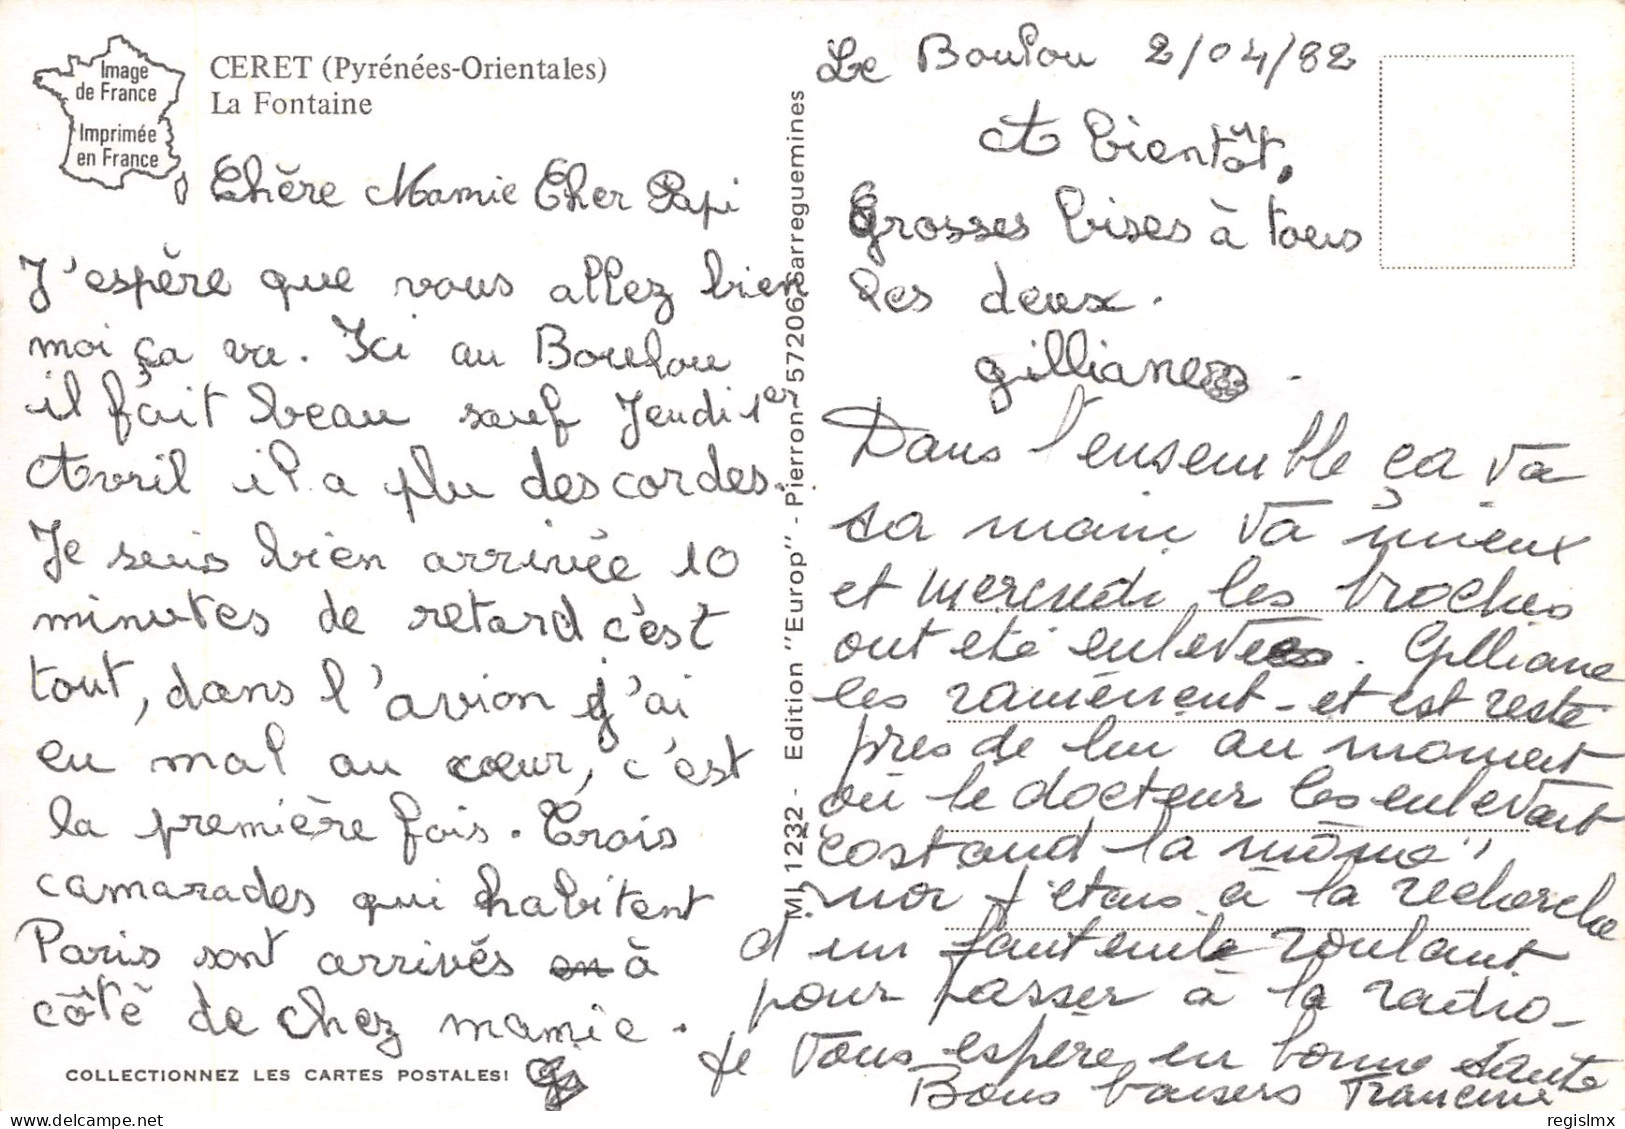 Image
de France
Imprimée
en France
CERET (Pyrénées-Orientales)
La Fontaine
Chère Mamie Cher Papi
J'espère que vous allez bien
moi ça va. Ici au Boulou
il fait beau sauf Jeudi 1er
Avril il a plu des cordes.
Je suis bien arrivée 10
minutes de retard c'est
tout, dans l'avion j'ai
eu mal au cœur, c'est
la première fois. Trois
camarades qui habitent
Paris sont arrivés à
côté de chez mamie.
COLLECTIONNEZ LES CARTES POSTALES!
MI 1232 - Edition "Europ" - Pierron - 57206 Sarreguemines
Le Boulou 2/04/82
A bientôt,
Grosses bises à tous
les deux.
gilliane
Dans l'ensemble ça va
sa main va mieux
et mercredi les broches
ont été enlevées. Gilliane
les ramènent - et est resté
près de lui au moment
où le docteur les enlevait
costaud la môme"
moi j'étais à la recherche
d'un fauteuil roulant
pour passer à la radio -
Je vous espère en bonne santé
Bons baisers Francine
regislmx